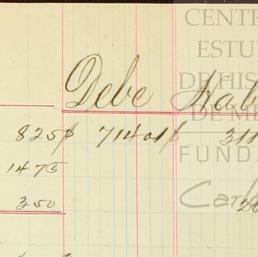 CENTR
ESTU
DE HIS
DE M
FUND
Carl
Debe Hab
825 $ 714 01 $ 311
14 75
3 50